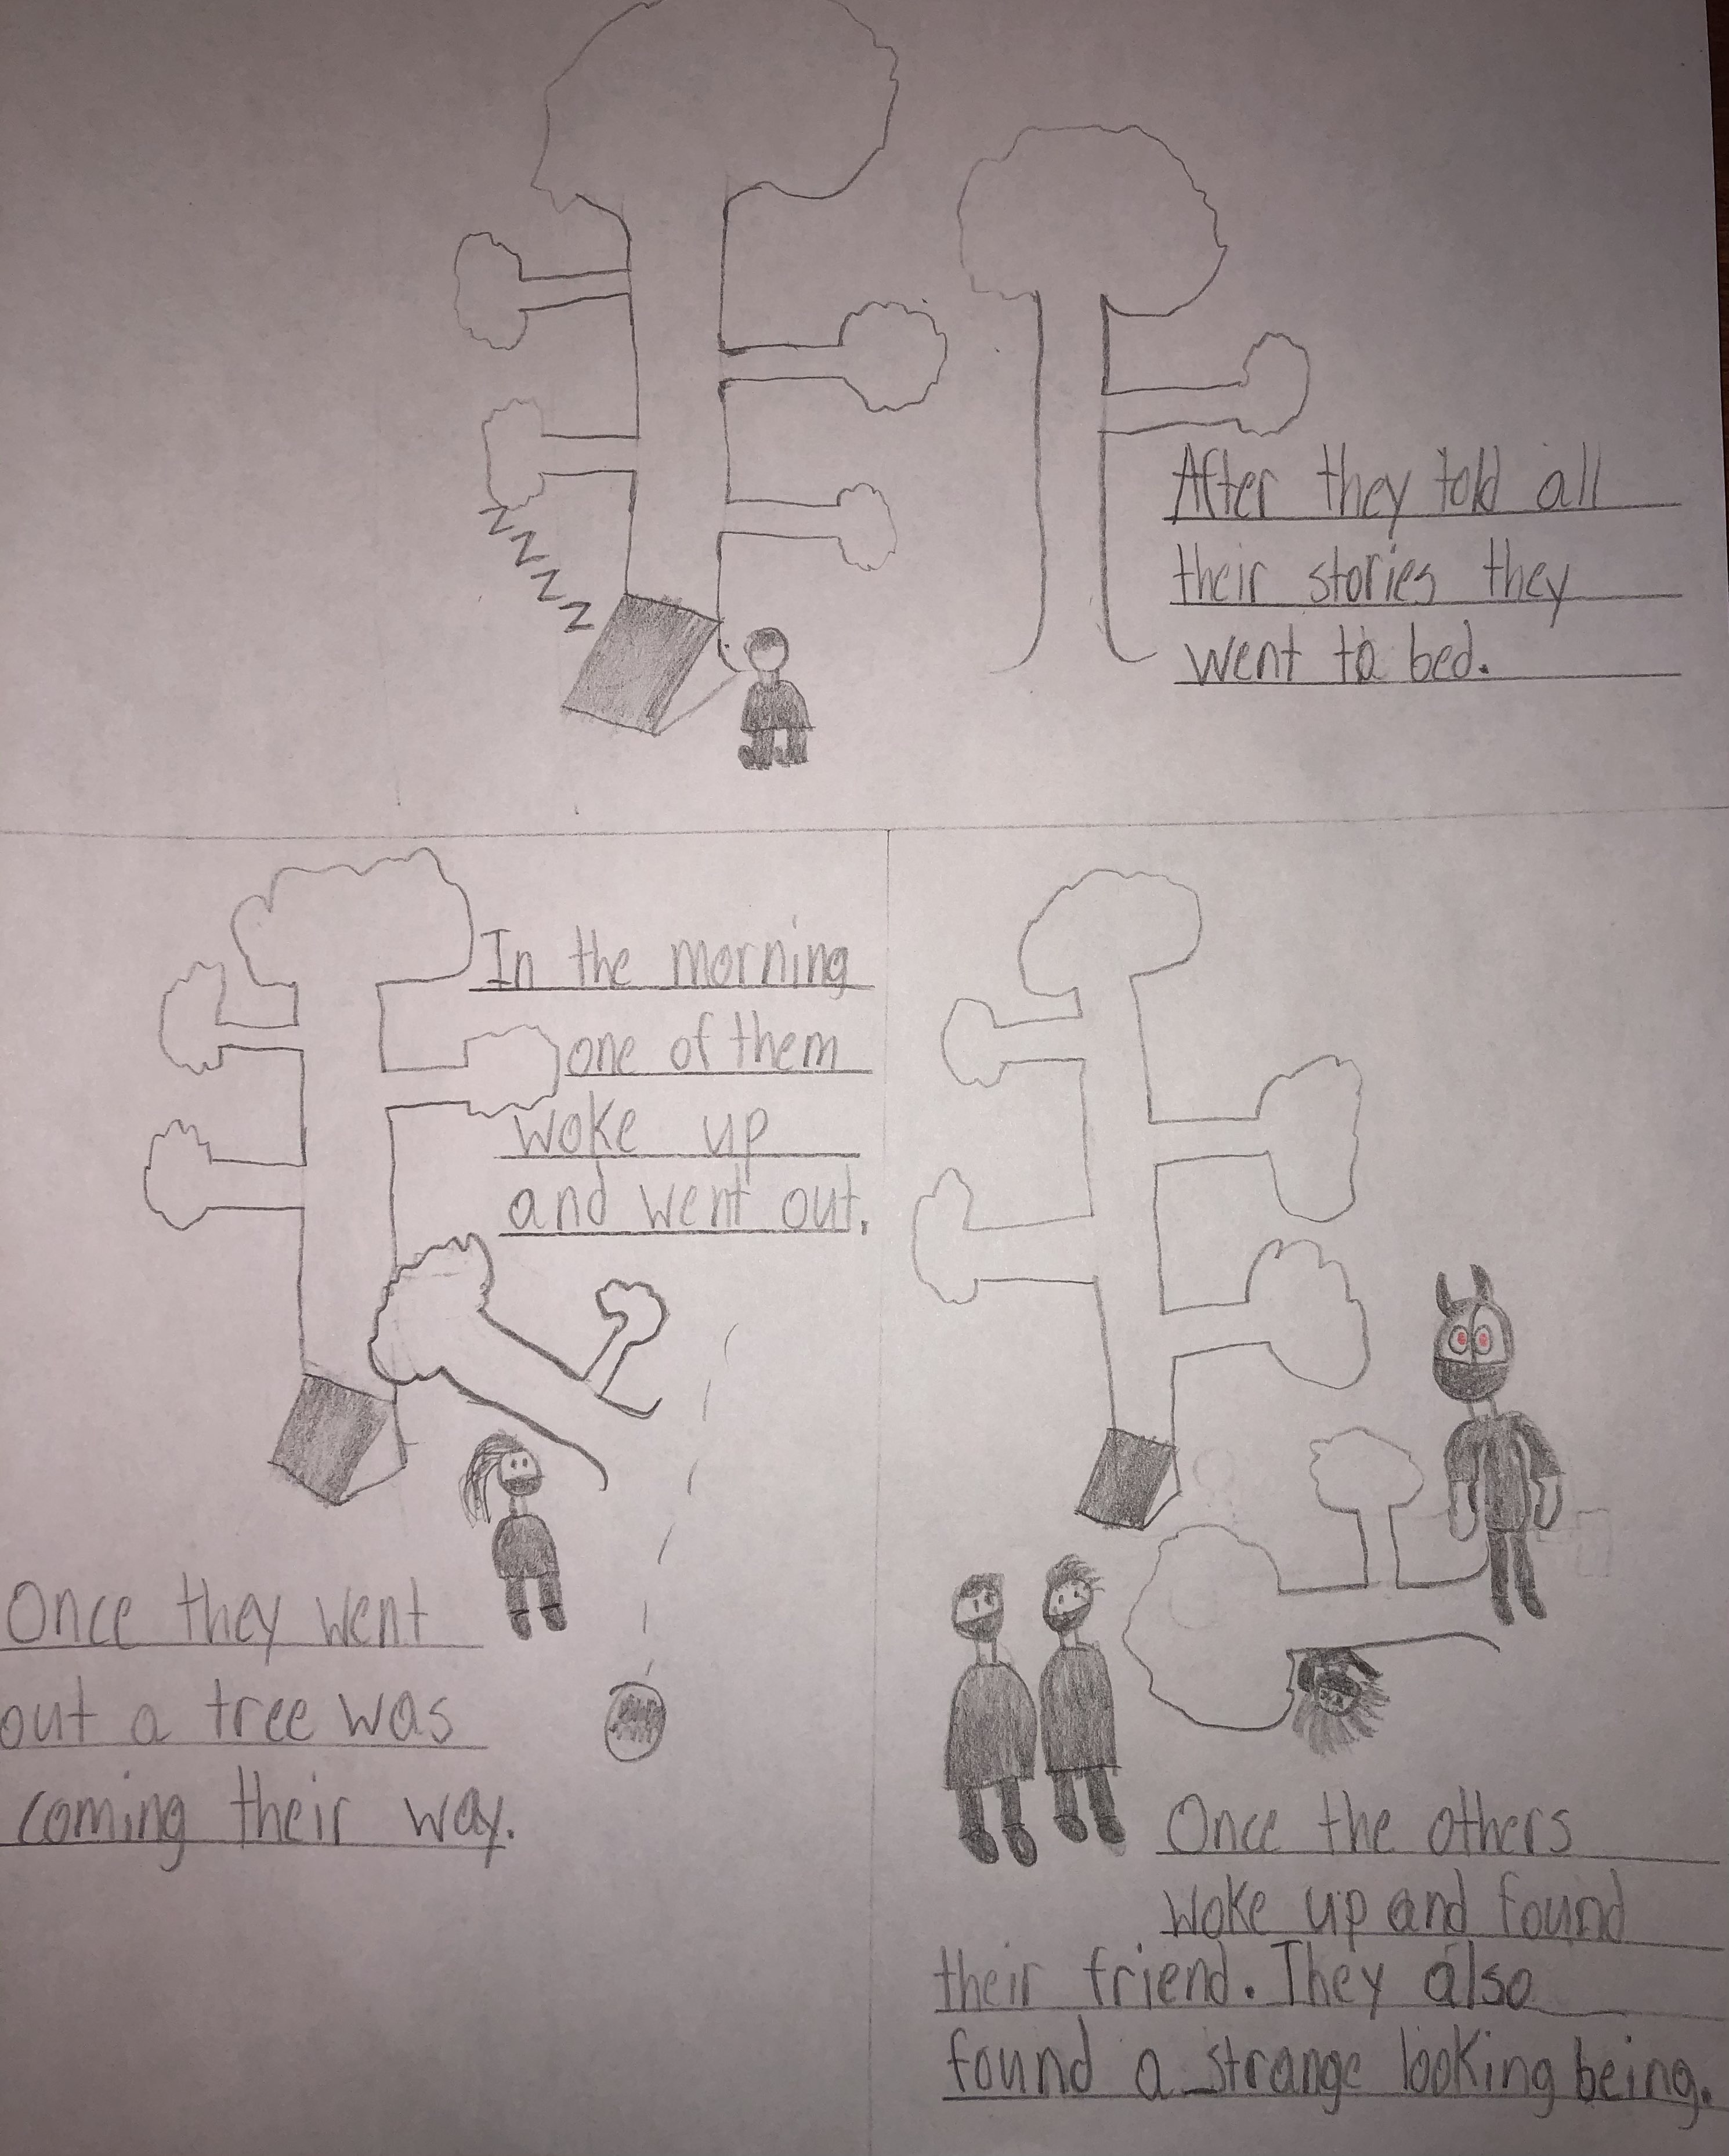 After they told all
their stories they
went to bed.
ZZZZ
In the morning
one of them
woke up
and went out.
Once they went
out a tree was
coming their way.
Once the others
woke up and found
their friend. They also
found a strange looking being.